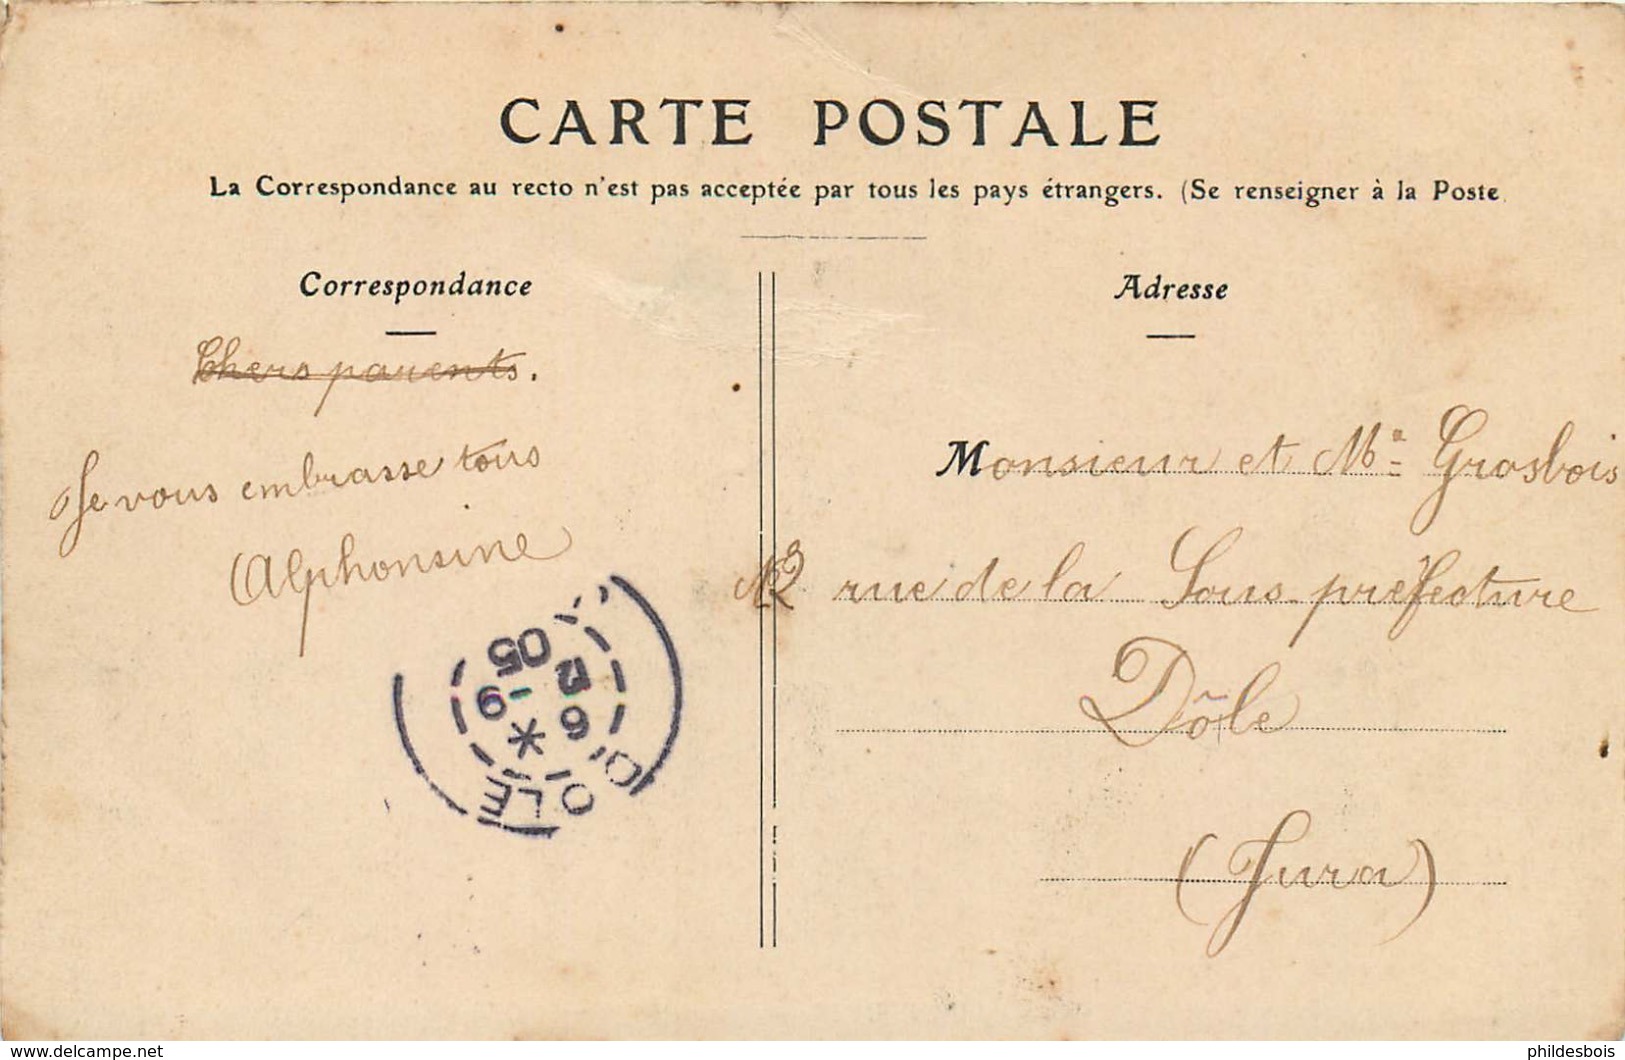 CARTE POSTALE
La Correspondance au recto n'est pas acceptée par tous les pays étrangers. (Se renseigner à la Poste
Correspondance
Chers parents.
Je vous embrasse tous
Alphonsine
Adresse
Monsieur et Mª Grosbois
rue de la Sous-préfecture
Dôle
(Jura)
DOLE
6
9-12
05
www.delcampe.net
phildesbois